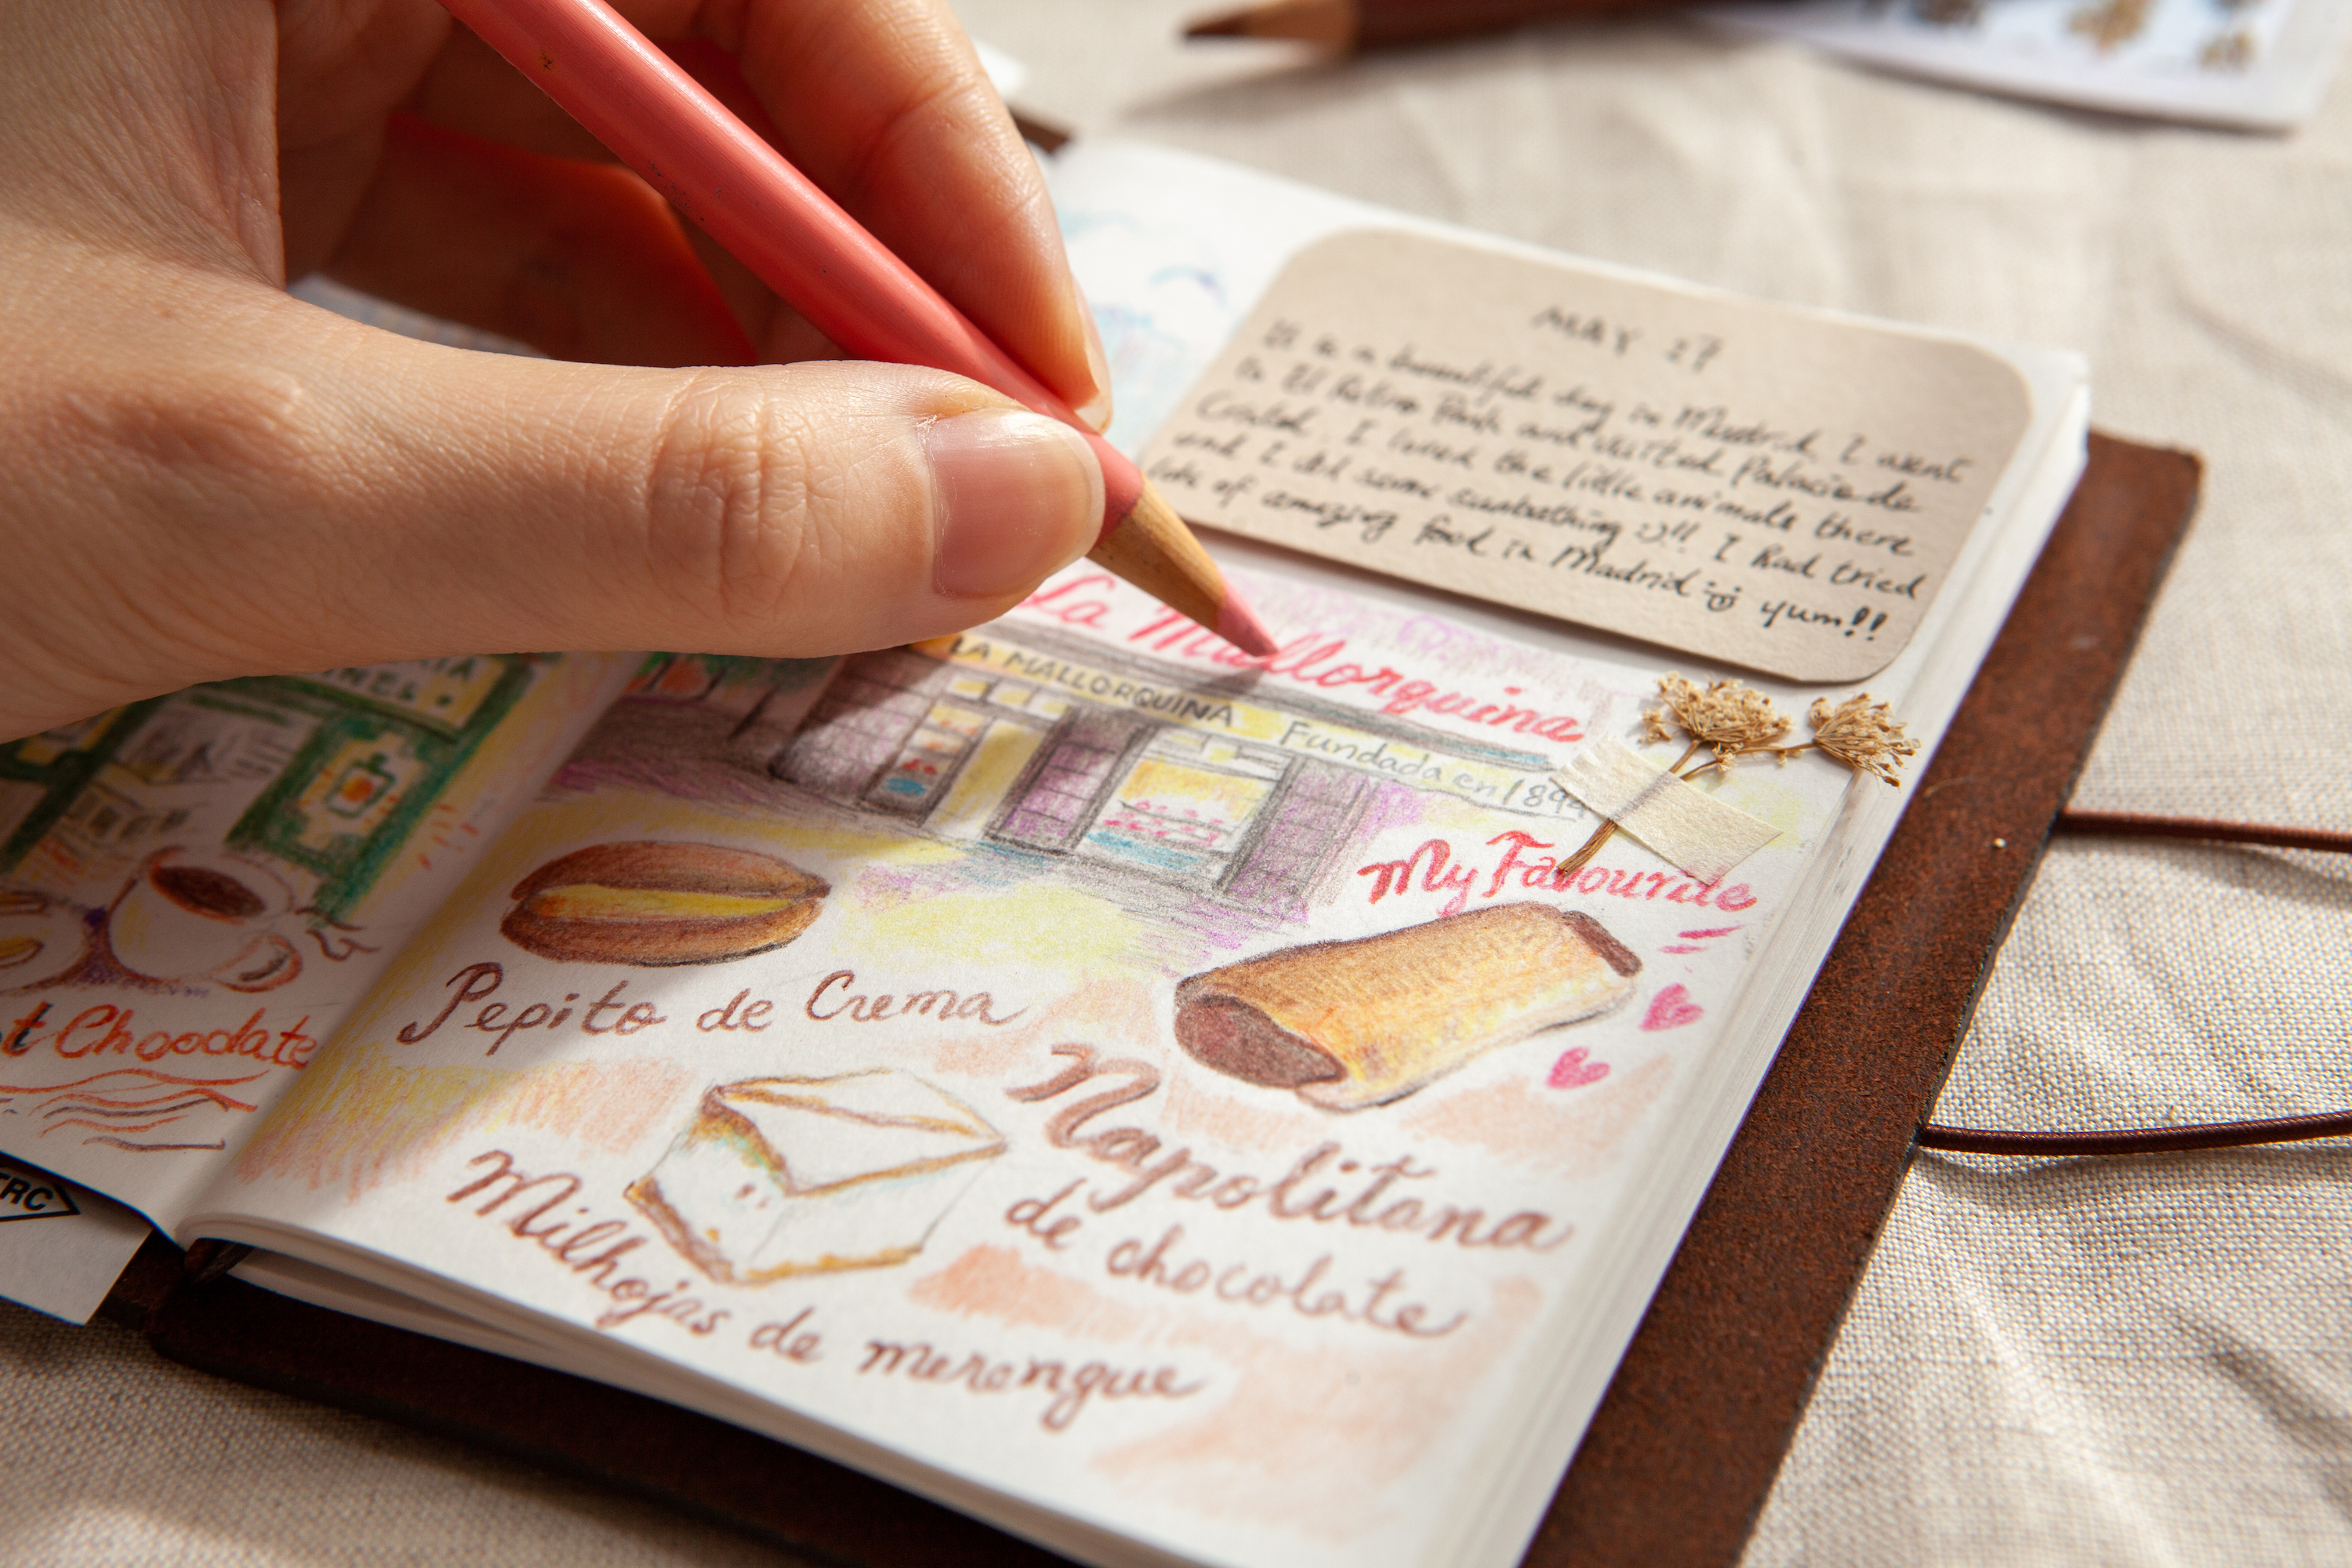 MAY 27
It is a beautiful day in Madrid I went
to El Retiro Park and visited Palacio de
Cristal. I loved the little animals there
and I did some sunbathing :)!! I had tried
lots of amazing food in Madrid yum!!
La Mallorquina
LA MALLORQUINA Fundada en 1894
My Favourite
Pepito de Crema
Napolitana
de chocolate
Milhojas de merengue
t Chocolate